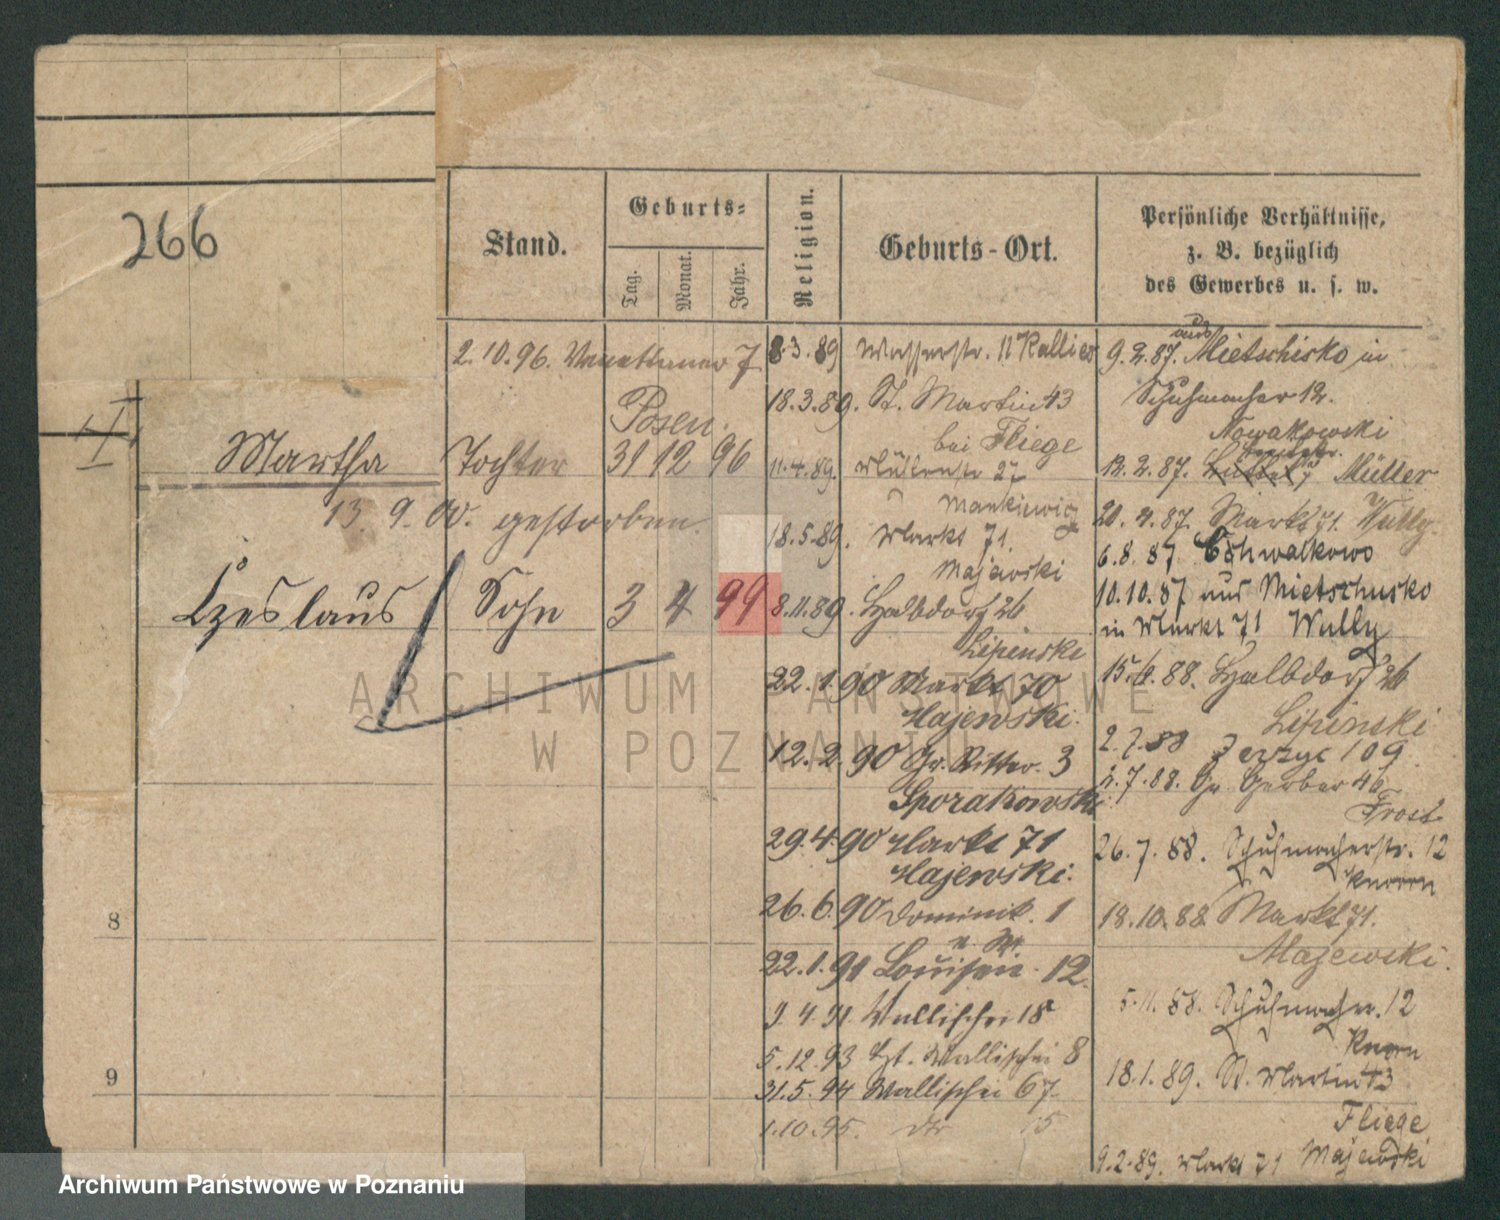 266
Stand.
Geburts=
Tag.
Monat.
Jahr.
Religion.
Geburts-Ort.
Persönliche Verhältnisse,
z. B. bezüglich
des Gewerbes u. s. w.
2.10.96. 7
Posen.
Martha Tochter 31 12 96
13. 9. 00. gestorben.
Czeslaus Sohn 3 4 99
8
9
8.3.89 Wasserstr. 11
18.3.89. St. Martin 43
bei Fliege
11.4.89. 27
Mankiewicz
18.5.89. Markt 71.
Majewski
8.11.89. Halbdorf 26
Lipinski
22.1.90 Markt 70
Majewski.
12.2.90 Gr. Ritter. 3
Sporakowski
29.4.90 Markt 71
Majewski.
26.6.90 Dominik. 1
22.1.91 Louisen 12.
9.4.91. Wallischei 18
5.12.93 Wallischei 8
31.5.94 Wallischei 67.
1.10.95. dto 15
aus
9.2.87. Mietschisko in
Schuhmacher 12.
Nowakowski
12.2.87. Müller
20.4.87. Markt 71. Wully.
6.8.87 Schwalkowo
10.10.87 aus Mietschisko
in Markt 71 Wully
15.6.88. Halbdorf 26
Lipinski
2.7.88 Jerzyc 109
2.7.88. Gr. Gerber 46
Frost
26.7.88. Schuhmacherstr. 12
Knorrn
18.10.88 Markt 71.
Majewski.
5.11.88. Schuhmacher. 12
Knorrn
18.1.89. St. Martin 43
Fliege
9.2.89. Markt 71 Majewski
ARCHIWUM PAŃSTWOWE
W POZNANIU
Archiwum Państwowe w Poznaniu